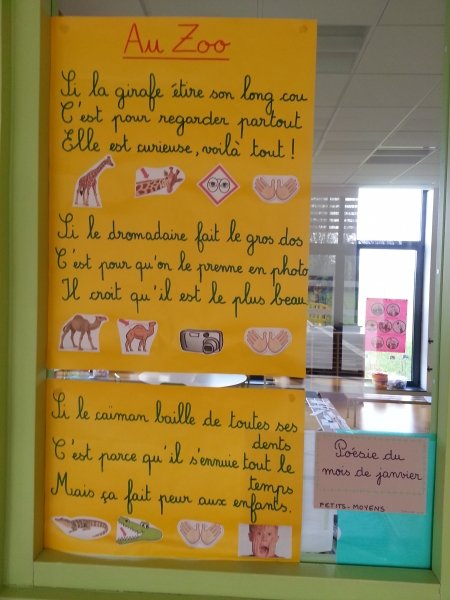 Au Zoo
Si la girafe étire son long cou
C'est pour regarder partout
Elle est curieuse, voilà tout !
Si le dromadaire fait le gros dos
C'est pour qu'on le prenne en photo
Il croit qu'il est le plus beau
Si le caïman baille de toutes ses
dents
C'est parce qu'il s'ennuie tout le
temps
Mais ça fait peur aux enfants.
Poésie du
mois de janvier
PETITS-MOYENS